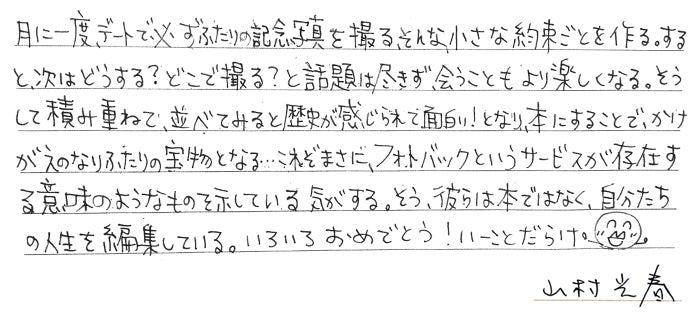 月に一度、デートで必ずふたりの記念写真を撮る、そんな小さな約束ごとを作る。する
と、次はどうする？どこで撮る？と話題は尽きず、会うこともより楽しくなる。そう
して積み重ねて、並べてみると歴史が感じられて面白い！となり、本にすることで、かけ
がえのなりふたりの宝物となる…これぞまさに、フォトバックというサービスが存在す
る意味のようなものを示している気がする。そう、彼らは本ではなく、自分たち
の人生を編集している。いろいろおめでとう！いーことだらけ。
山村光春